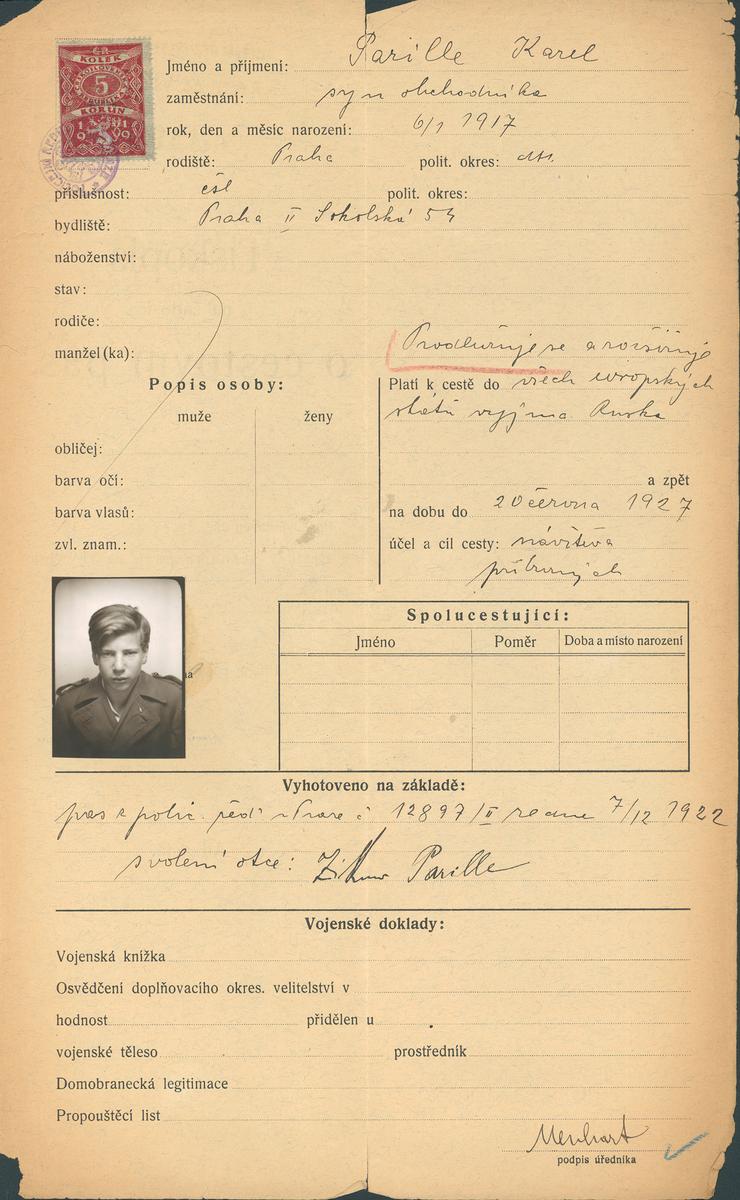 KOLEK
5
KORUN
1919
Jméno a příjmení: Parille Karel
zaměstnání: syn obchodníka
rok, den a měsíc narození: 6/1 1917
rodiště: Praha polit. okres: dtt.
příslušnost: čsl polit. okres:
bydliště: Praha II Sokolská 54
náboženství:
stav:
rodiče:
manžel (ka):
Prodlužuje se a rozšiřuje
Popis osoby:
Platí k cestě do všech evropských
muže ženy
států vyjma Ruska
obličej:
barva očí:
a zpět
barva vlasů:
na dobu do 20 června 1927
zvl. znam.:
účel a cíl cesty: návštěva
příbuzných
Spolucestující:
Jméno Poměr Doba a místo narození
Vyhotoveno na základě:
pas polic. řed. v Praze č 12897/II ze dne 7/12 1922
svolení otce: Parille
Vojenské doklady:
Vojenská knížka
Osvědčení doplňovacího okres. velitelství v
hodnost přidělen u
vojenské těleso prostředník
Domobranecká legitimace
Propouštěcí list
Menhart
podpis úředníka